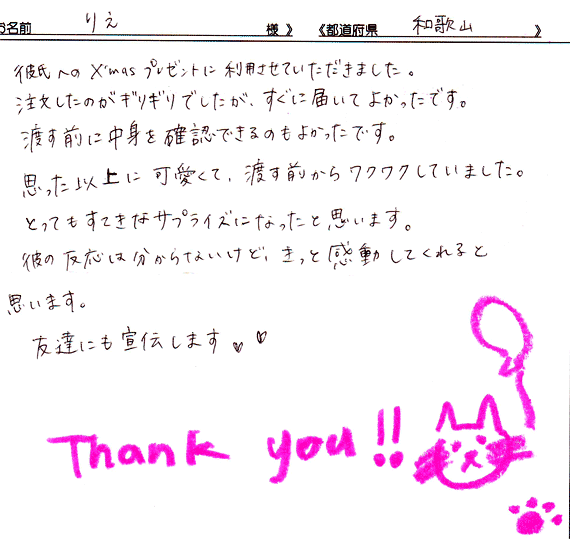 お名前 りえ 様 》 《都道府県 和歌山 》
彼氏へのX'masプレゼントに利用させていただきました。
注文したのがギリギリでしたが、すぐに届いてよかったです。
渡す前に中身を確認できるのもよかったです。
思った以上に可愛くて、渡す前からワクワクしていました。
とってもすてきなサプライズになったと思います。
彼の反応は分からないけど、きっと感動してくれると
思います。
友達にも宣伝します♡♡
Thank you!!